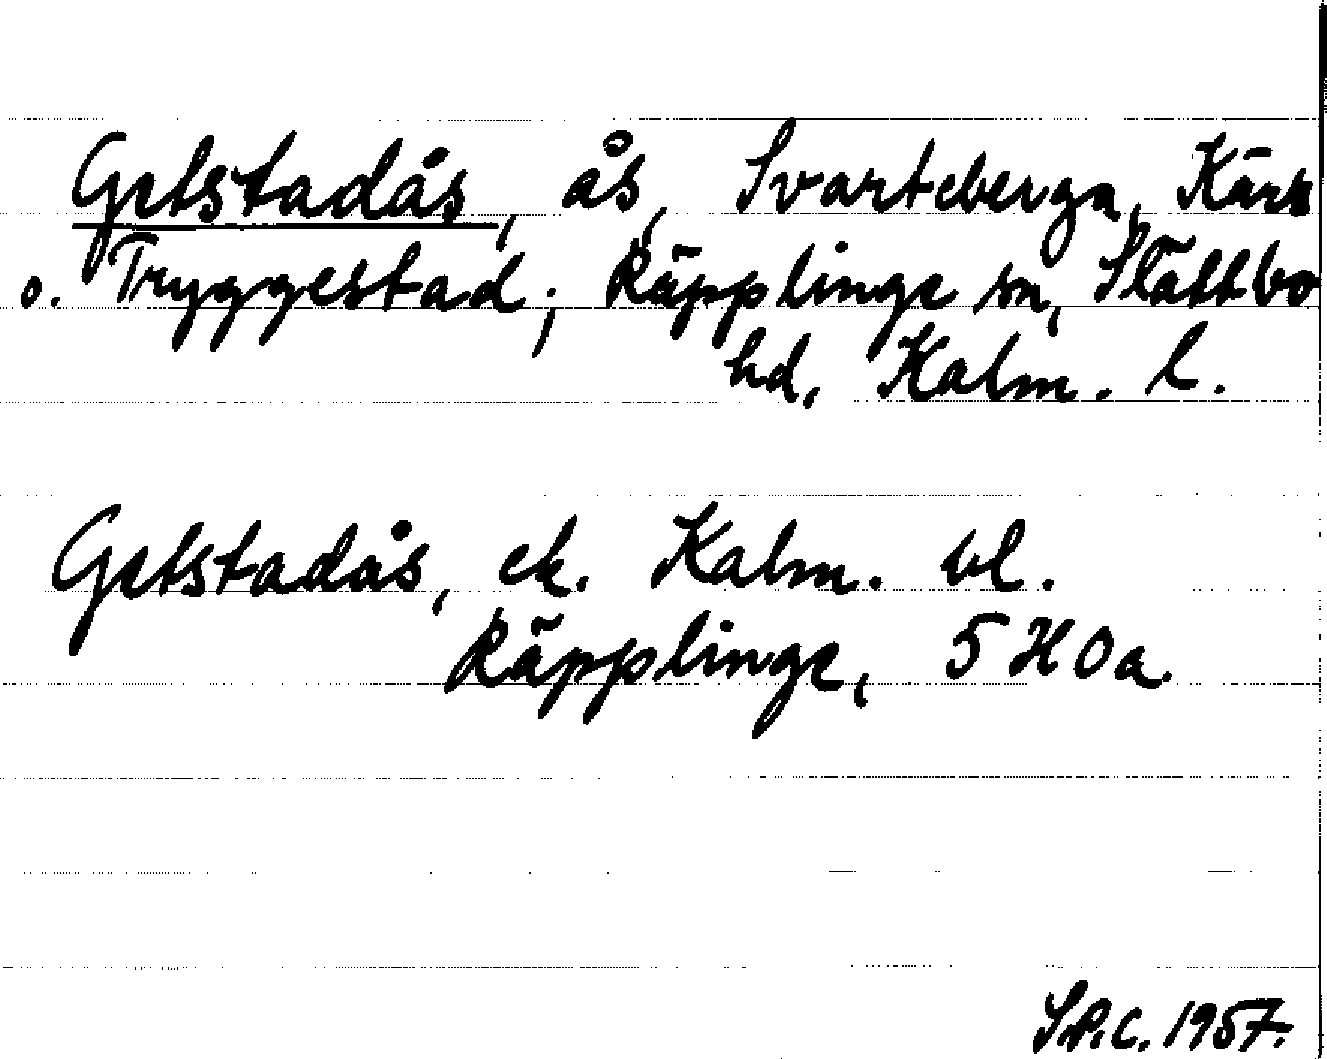 Getstadås, ås, Svarteberga, Kärk
o. Tryggestad; Räpplinge sn, Slättbo
hd, Kalm. l.
Getstadås, ek. Kalm. bl.
Räpplinge, 5 H 0 a.
S.P.C. 1957.